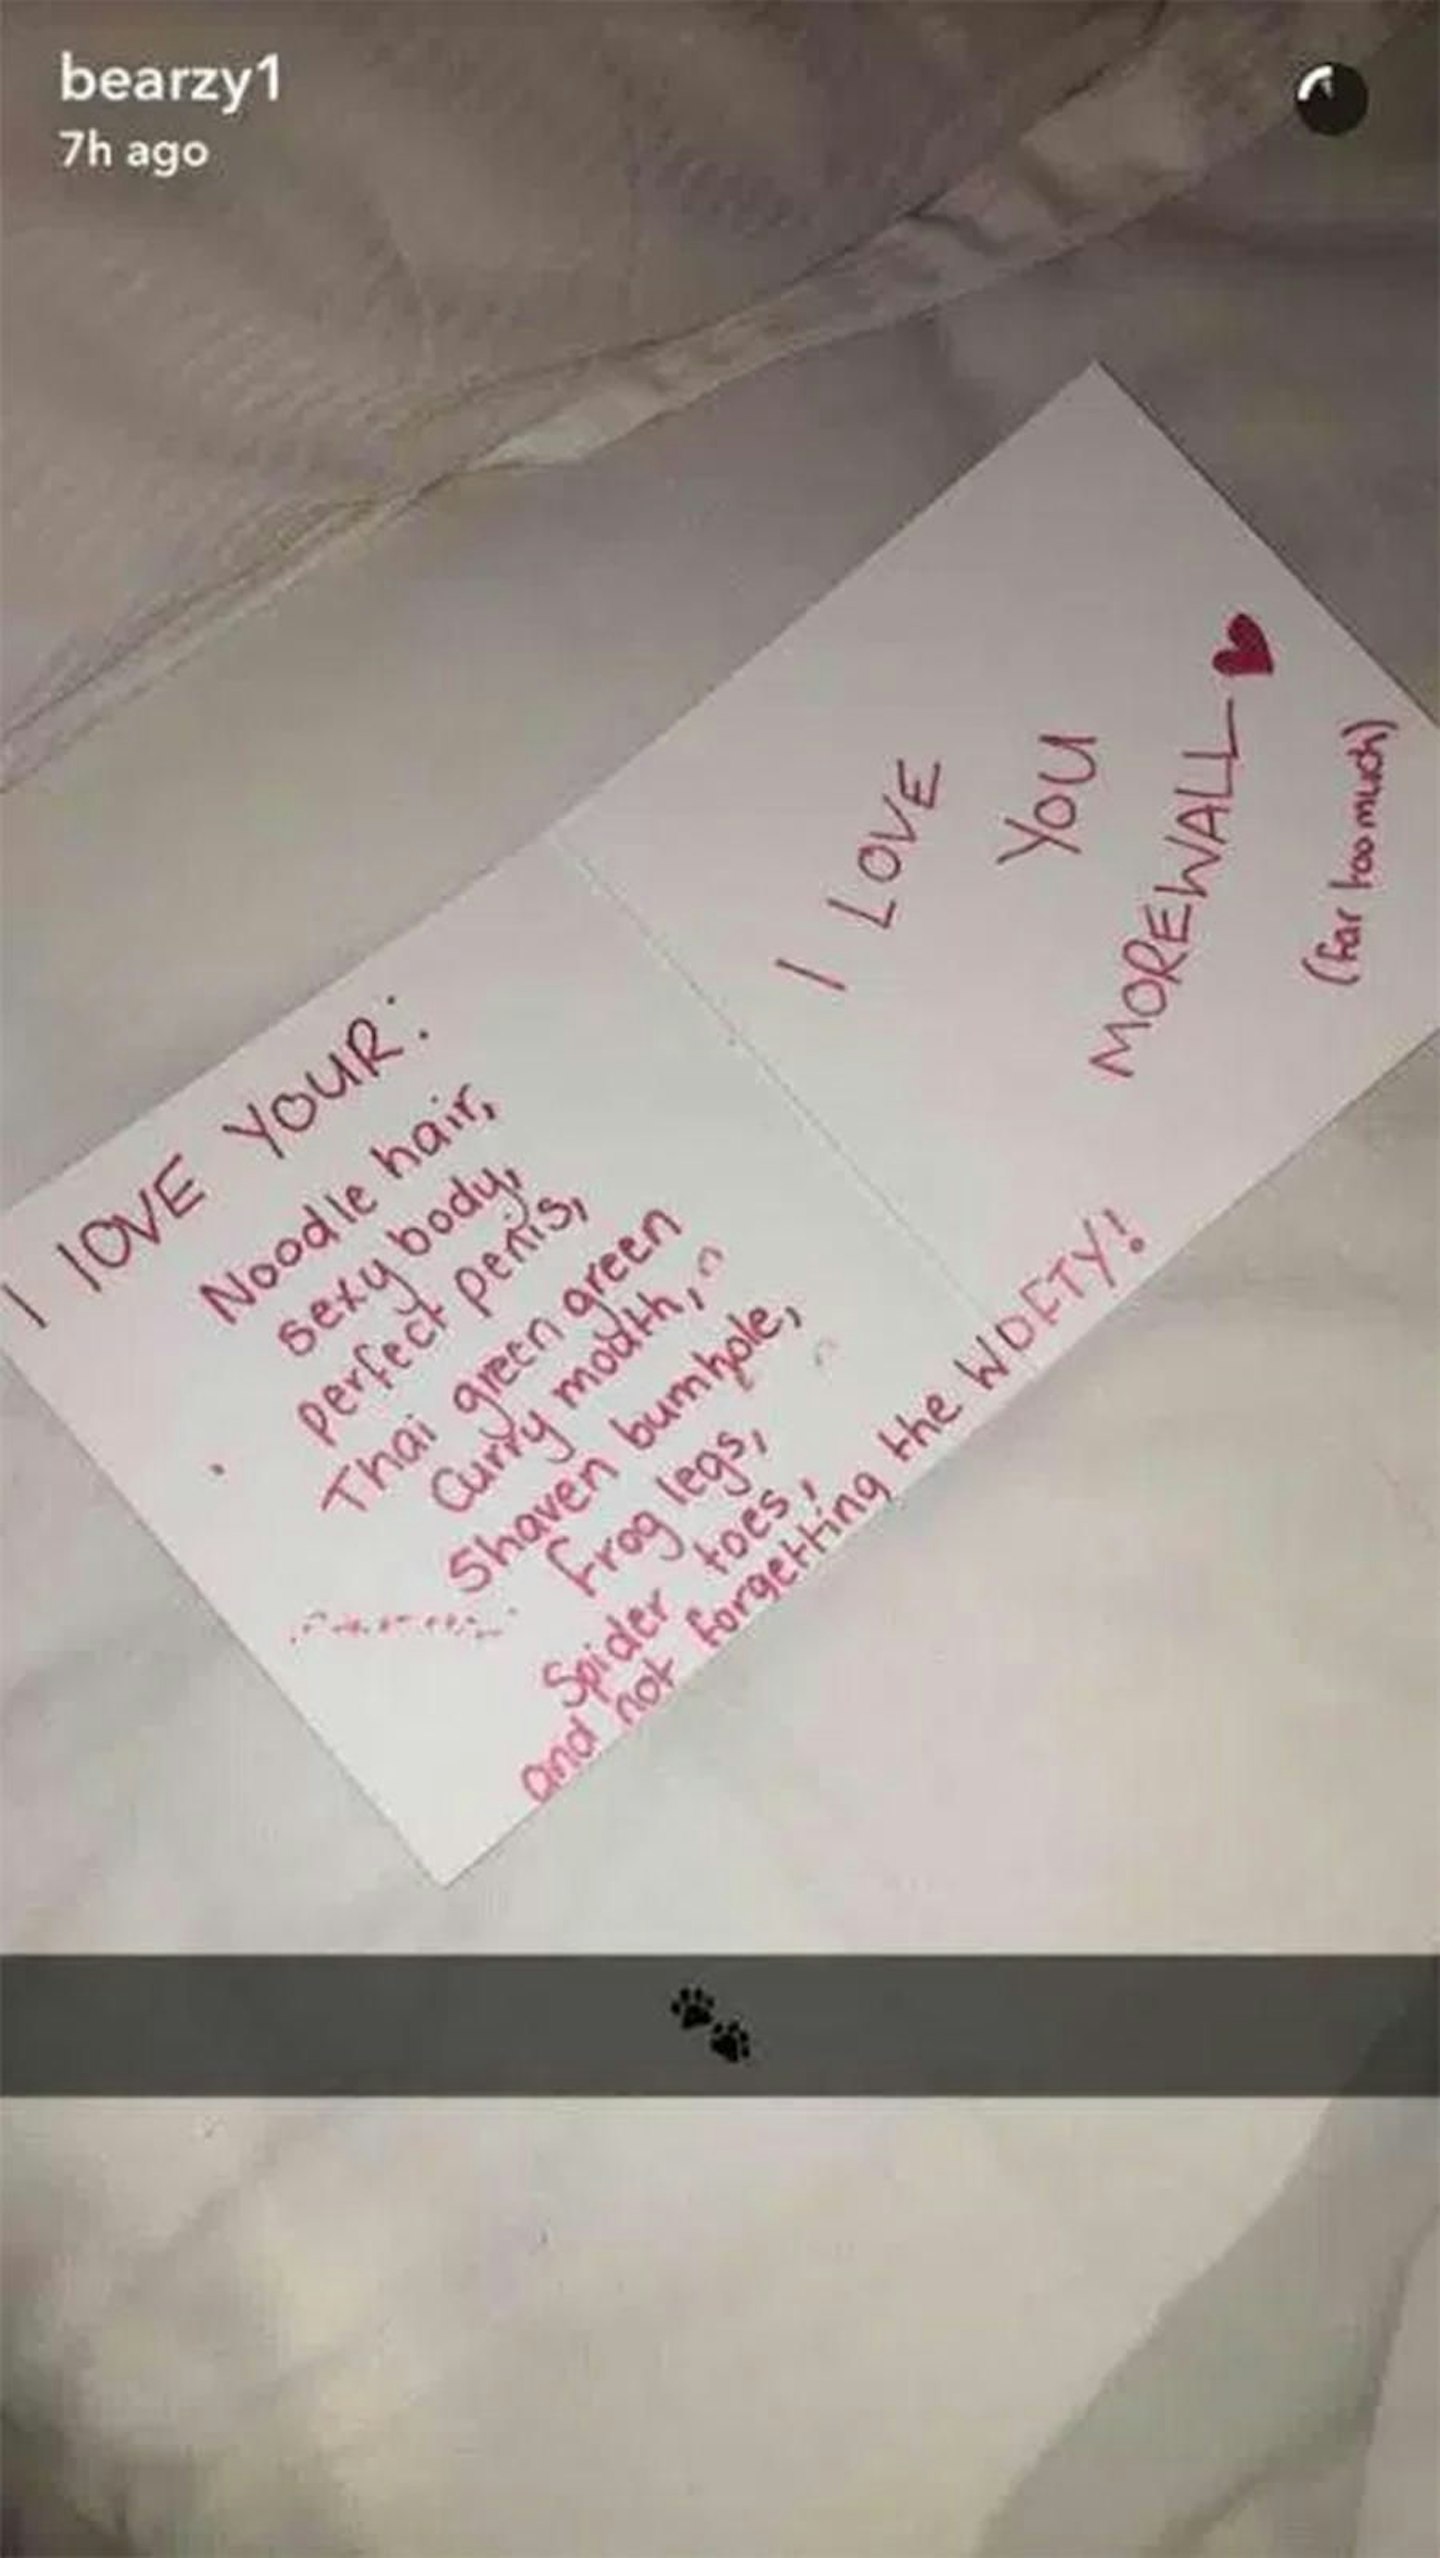 bearzy1
7h ago
I LOVE
YOU
MOREWALL ♥
(far too much)
I lOVE YOUR:
Noodle hair,
sexy body,
perfect penis,
Thai green green
Curry mouth,
Shaven bumhole,
frog legs,
Spider toes,
and not forgetting the WOFTY!